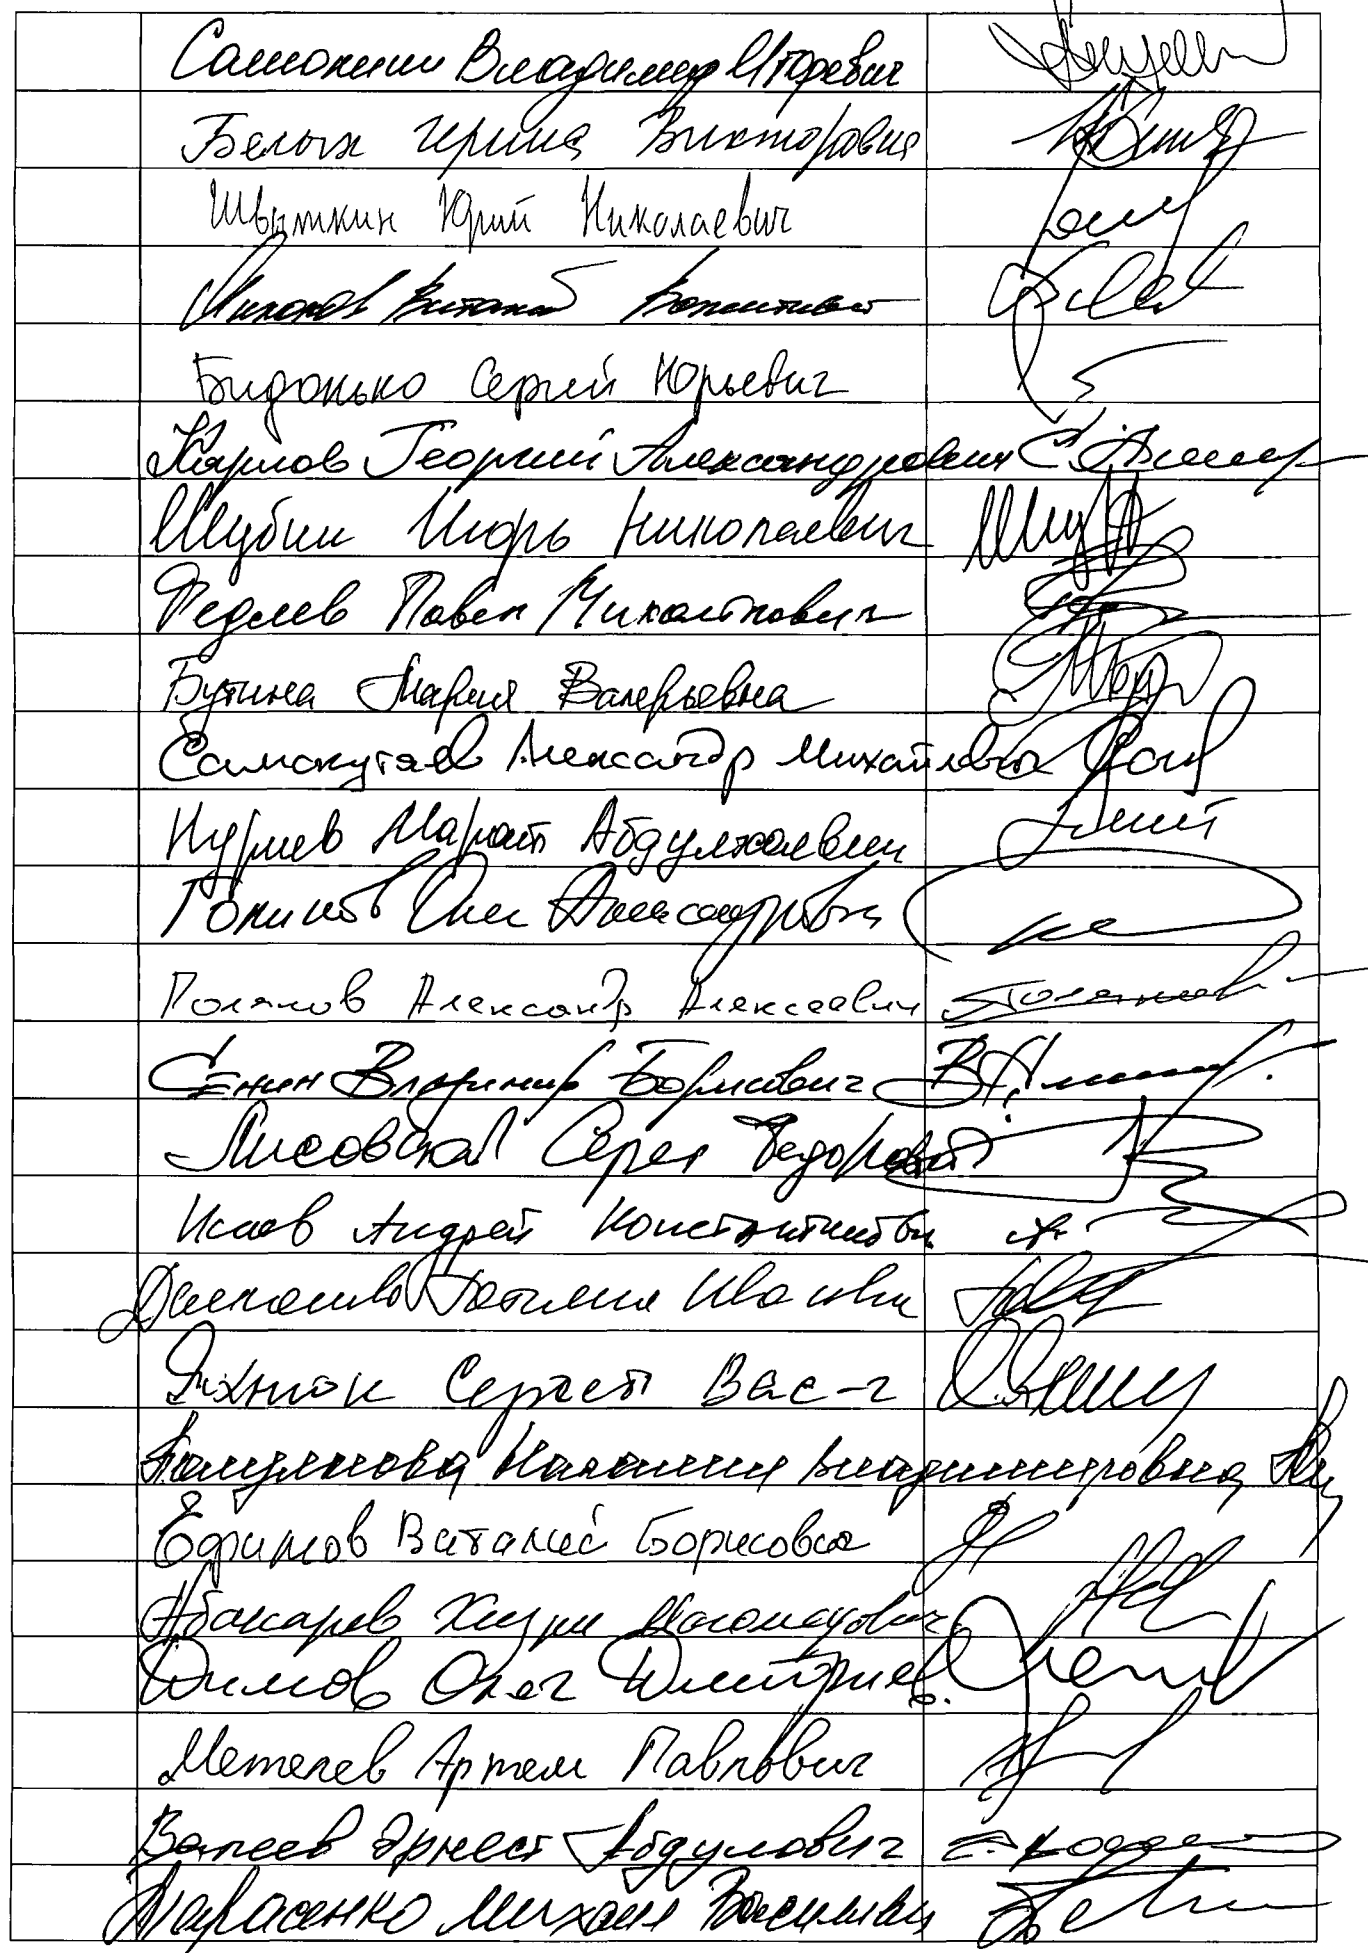 Самокиш Владимир Игоревич
Белых Ирина Викторовна
Швыткин Юрий Николаевич
Лихачев Виталий
Бидонько Сергей Юрьевич
Карлов Георгий Александрович
Шубин Игорь Николаевич
Федяев Павел Михайлович
Бутина Мария Валерьевна
Самокутяев Александр Михайлович
Нуриев Марат Абдулхаевич
Голиков Олег Александрович
Поляков Александр Алексеевич
Сенин Владимир Борисович
Лисовский Сергей Федорович
Исаев Андрей Константинович
Татьяна Ивановна
Яхнюк Сергей Вас-ч
Полуянова Наталия Владимировна
Ефимов Виталий Борисович
Абакаров Хизри Магомедович
Димов Олег Дмитриев.
Метелев Артем Павлович
Валеев Эрнест Абдулович
Тарасенко Михаил Васильевич